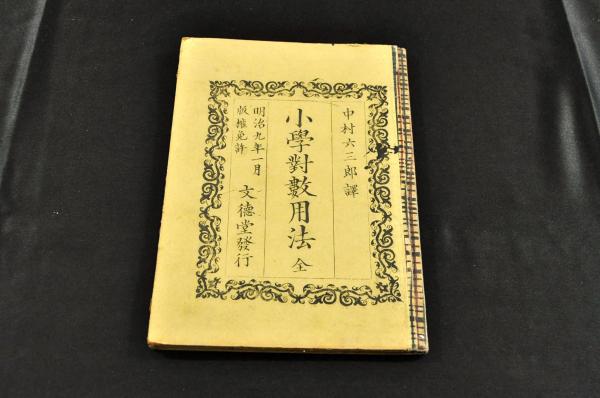 中村六三郎譯
小學對數用法 全
明治九年一月
版權免許
文德堂發行